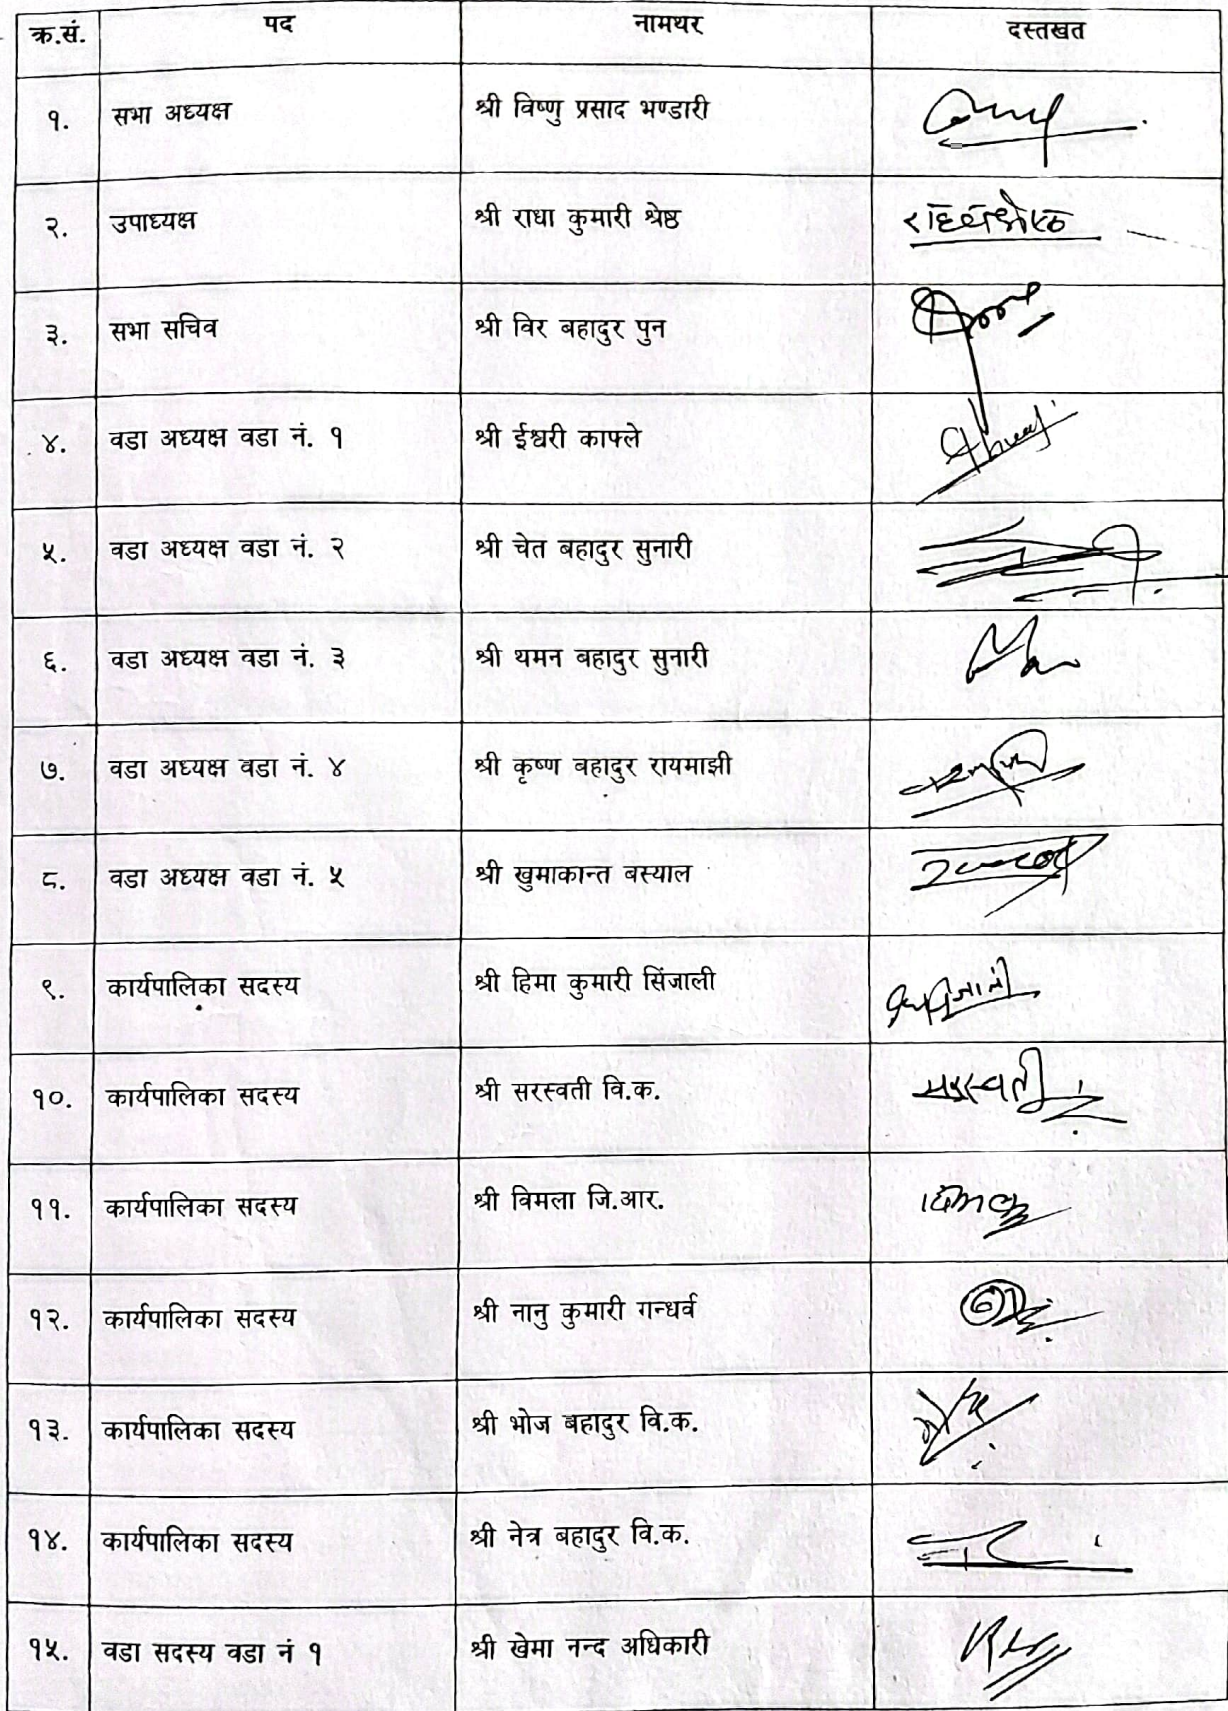 क्र.सं. पद नामथर दस्तखत
१. सभा अध्यक्ष श्री विष्णु प्रसाद भण्डारी
२. उपाध्यक्ष श्री राधा कुमारी श्रेष्ठ
३. सभा सचिव श्री विर बहादुर पुन
४. वडा अध्यक्ष वडा नं. १ श्री ईश्वरी काफ्ले
५. वडा अध्यक्ष वडा नं. २ श्री चेत बहादुर सुनारी
६. वडा अध्यक्ष वडा नं. ३ श्री थमन बहादुर सुनारी
७. वडा अध्यक्ष वडा नं. ४ श्री कृष्ण बहादुर रायमाझी
८. वडा अध्यक्ष वडा नं. ५ श्री खुमाकान्त बस्याल
९. कार्यपालिका सदस्य श्री हिमा कुमारी सिंजाली
१०. कार्यपालिका सदस्य श्री सरस्वती वि.क. सरस्वती
११. कार्यपालिका सदस्य श्री विमला जि.आर.
१२. कार्यपालिका सदस्य श्री नानु कुमारी गन्धर्व
१३. कार्यपालिका सदस्य श्री भोज बहादुर वि.क.
१४. कार्यपालिका सदस्य श्री नेत्र बहादुर वि.क.
१५. वडा सदस्य वडा नं १ श्री खेमा नन्द अधिकारी